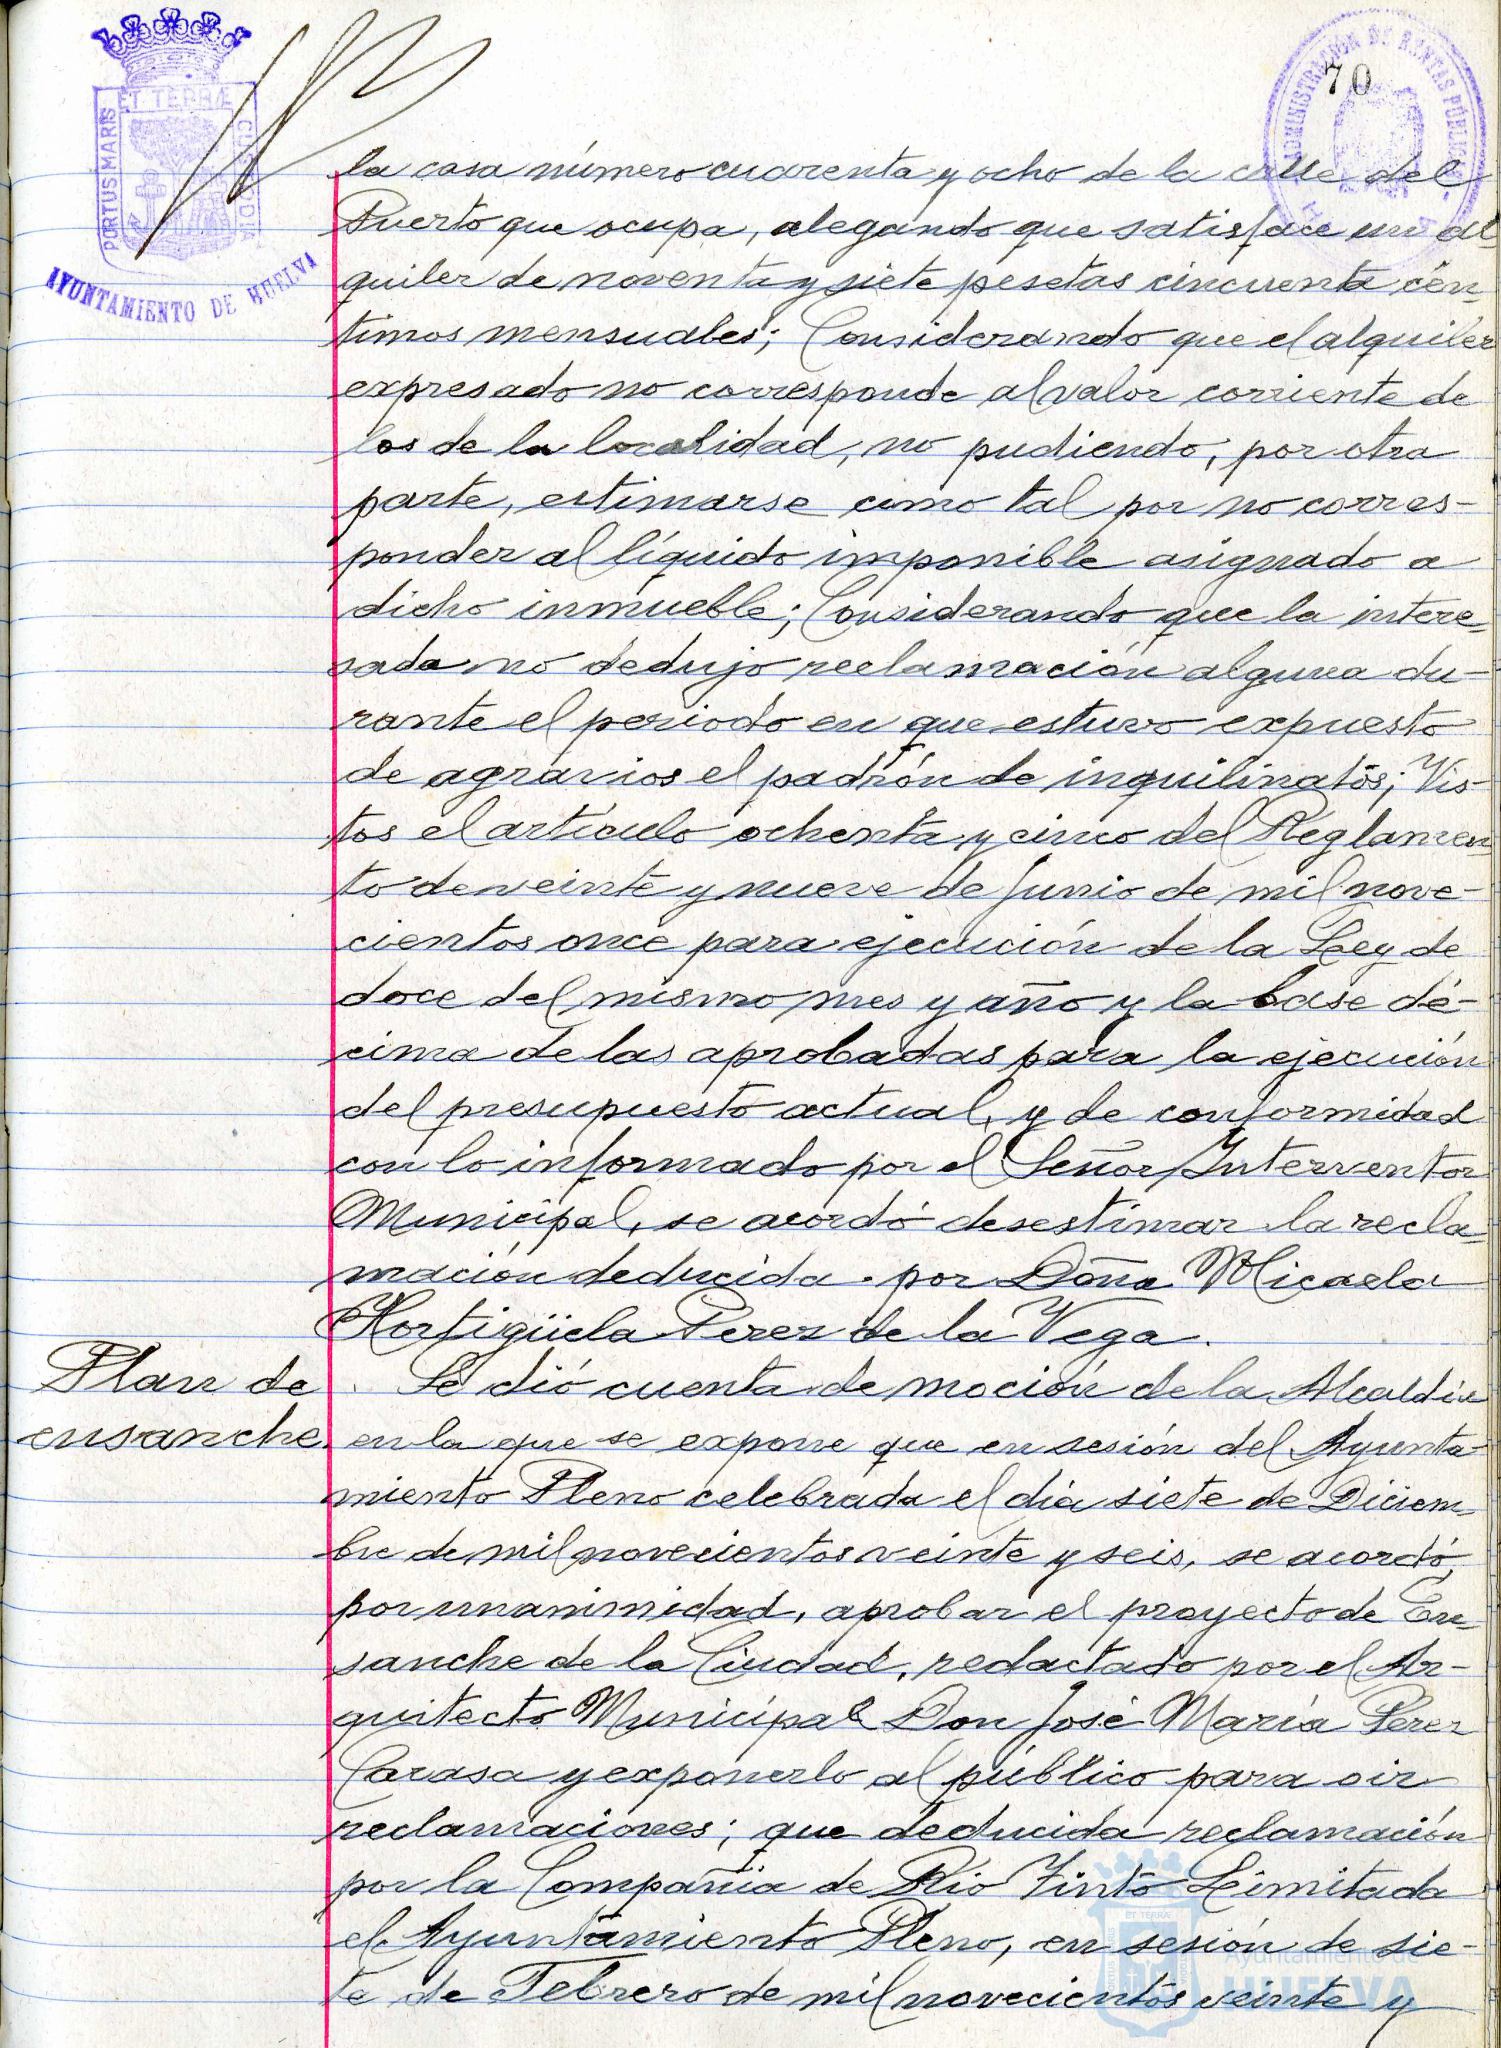 70
ET TERRÆ
PORTUS MARIS
CUSTODIA
AYUNTAMIENTO DE HUELVA
ADMINISTRACIÓN DE RENTAS PÚBLICAS
la casa número cuarenta y ocho de la calle del
Puerto que ocupa, alegando que satisface un al
quiler de noventa y siete pesetas cincuenta cén-
timos mensuales; Considerando que el alquiler
expresado no corresponde al valor corriente de
los de la localidad, no pudiendo, por otra
parte, estimarse como tal por no corres-
ponder al líquido imponible asignado a
dicho inmueble; Considerando que la intere-
sada no dedujo reclamación alguna du-
rante el periodo en que estuvo expuesto
de agravios el padrón de inquilinatos; Vis-
tos el artículo ochenta y cinco del Reglamen-
to de veinte y nueve de Junio de mil nove-
cientos once para ejecución de la Ley de
doce del mismo mes y año y la base dé-
cima de las aprobadas para la ejecución
del presupuesto actual, y de conformidad
con lo informado por el Señor Interventor
Municipal, se acordó desestimar la recla-
mación deducida por Doña Micaela
Hortigüela Perez de la Vega.
Plan de
ensanche.
Se dió cuenta de moción de la Alcaldía
en la que se expone que en sesión del Ayunta-
miento Pleno celebrada el día siete de Diciem-
bre de mil novecientos veinte y seis, se acordó,
por unanimidad, aprobar el proyecto de En-
sanche de la Ciudad, redactado por el Ar-
quitecto Municipal Don José María Perez
Carasa y exponerlo al público para oir
reclamaciones; que deducida reclamación
por la Compañía de Rio Tinto Limitada
el Ayuntamiento Pleno, en sesión de sie-
te de Febrero de mil novecientos veinte y
Ayuntamiento de
HUELVA